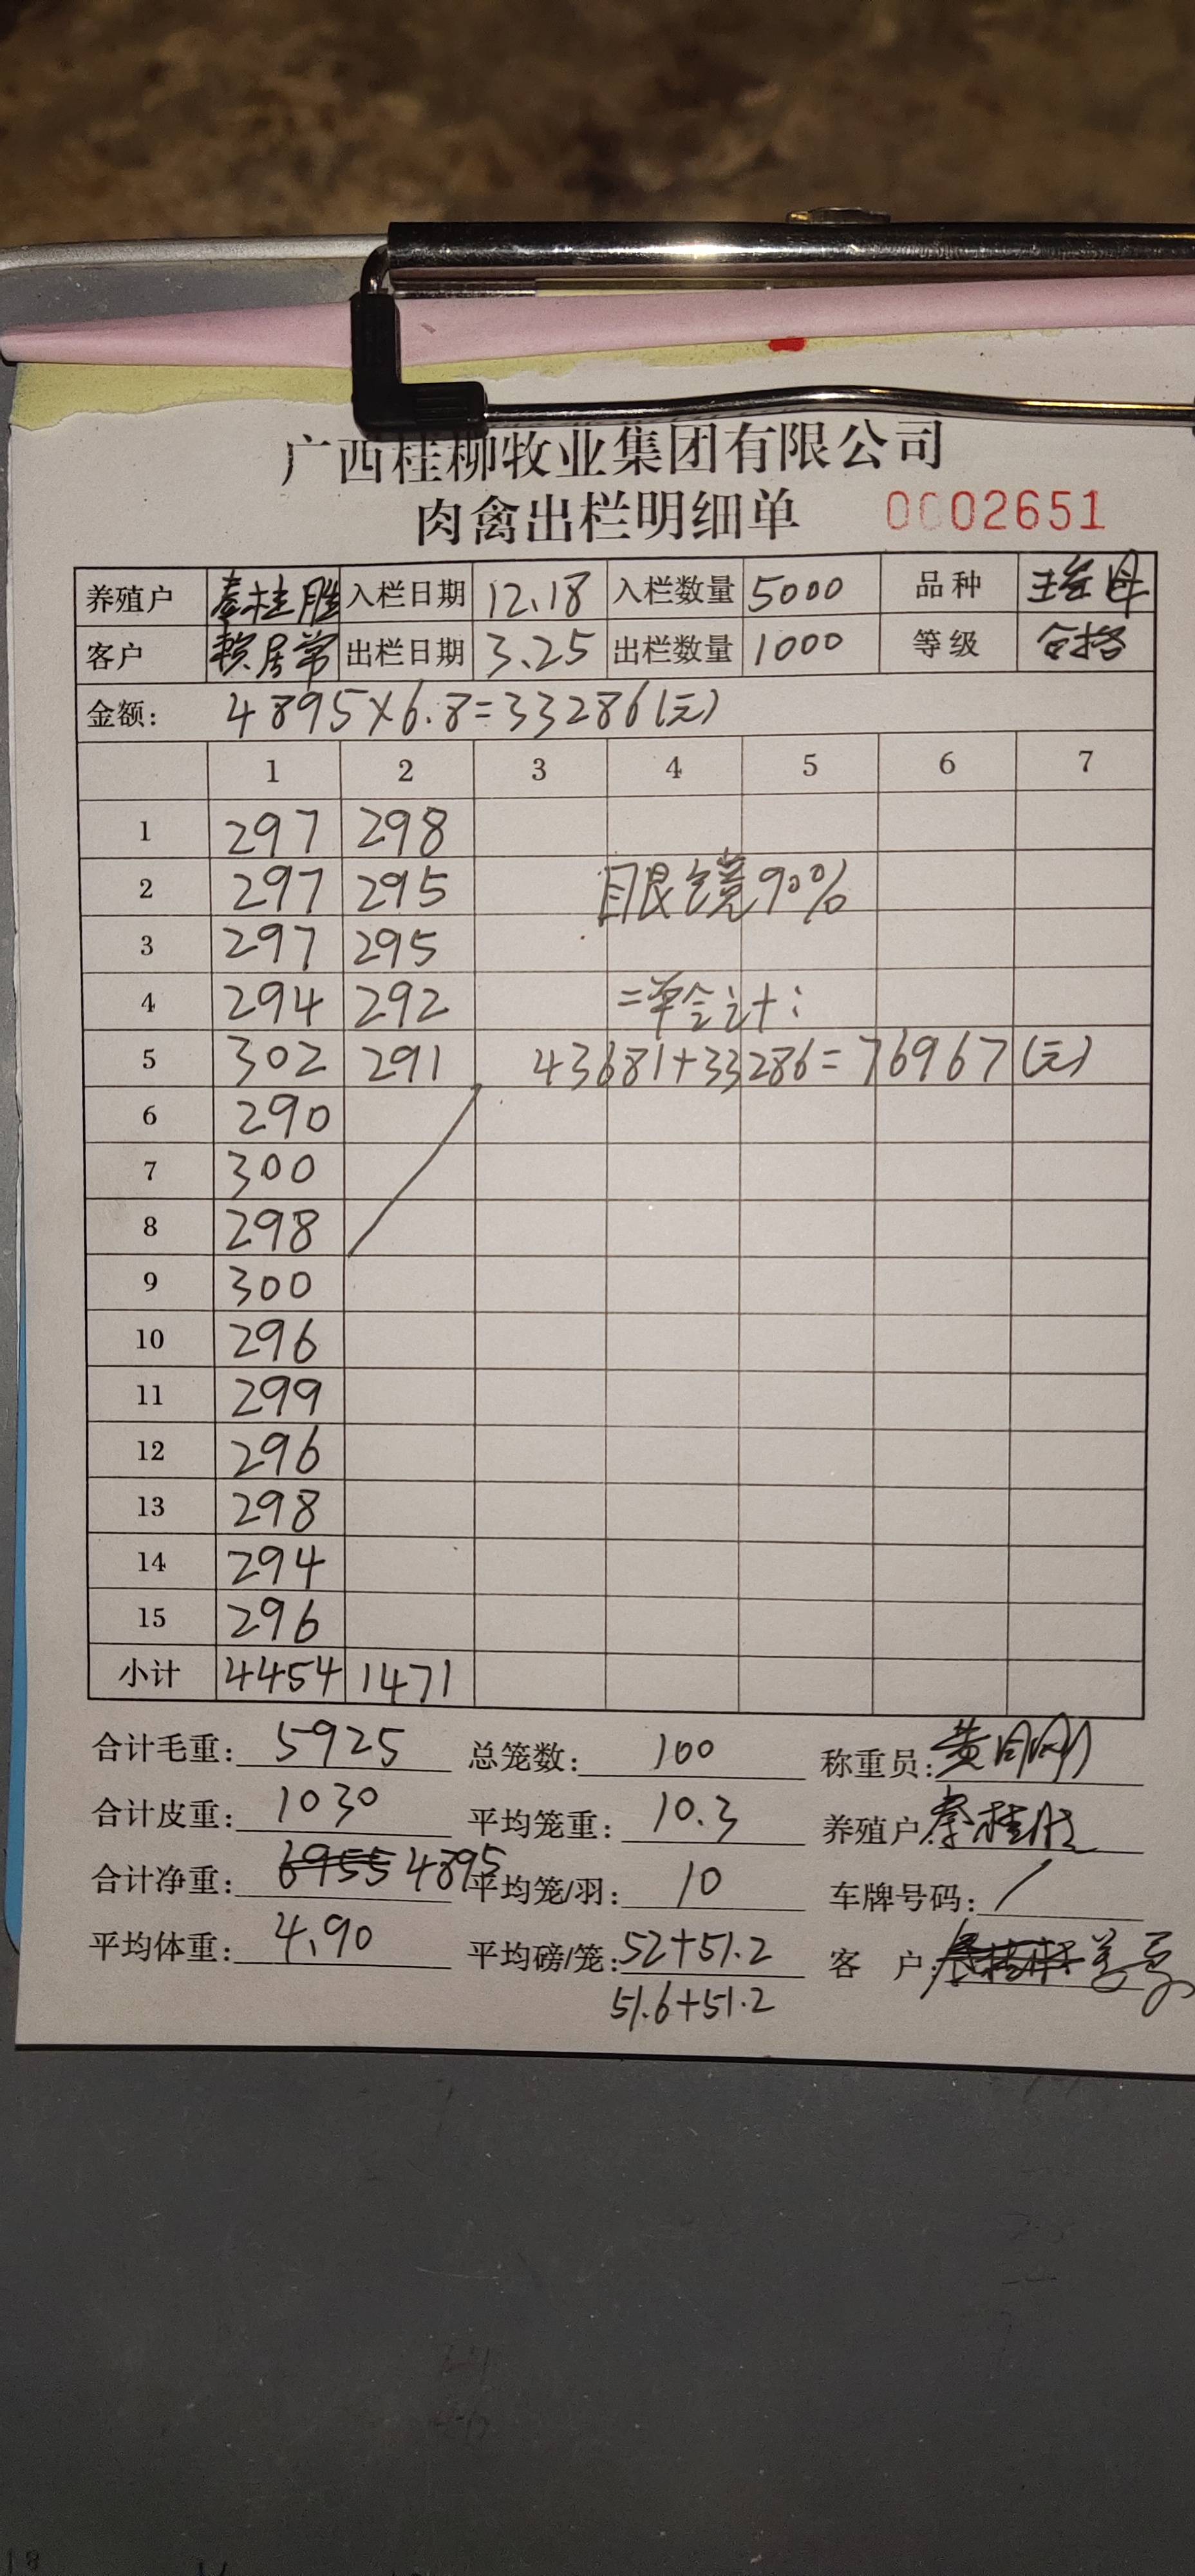 广西桂柳牧业集团有限公司
肉禽出栏明细单 0002651
养殖户 秦桂胜 入栏日期 12.18 入栏数量 5000 品种
客户 出栏日期 3.25 出栏数量 1000 等级 合格
金额: 4895×6.8=33286(元)
1 2 3 4 5 6 7
1 297 298
2 297 295 眼镜90%
3 297 295
4 294 292 二单合计:
5 302 291 43681+33286=76967(元)
6 290
7 300
8 298
9 300
10 296
11 299
12 296
13 298
14 294
15 296
小计 4454 1471
合计毛重: 5925 总笼数: 100 称重员:
合计皮重: 1030 平均笼重: 10.3 养殖户: 秦桂胜
合计净重: 6955 4895 平均笼/羽: 10 车牌号码: /
平均体重: 4.90 平均磅/笼: 52+51.2 客 户:
51.6+51.2